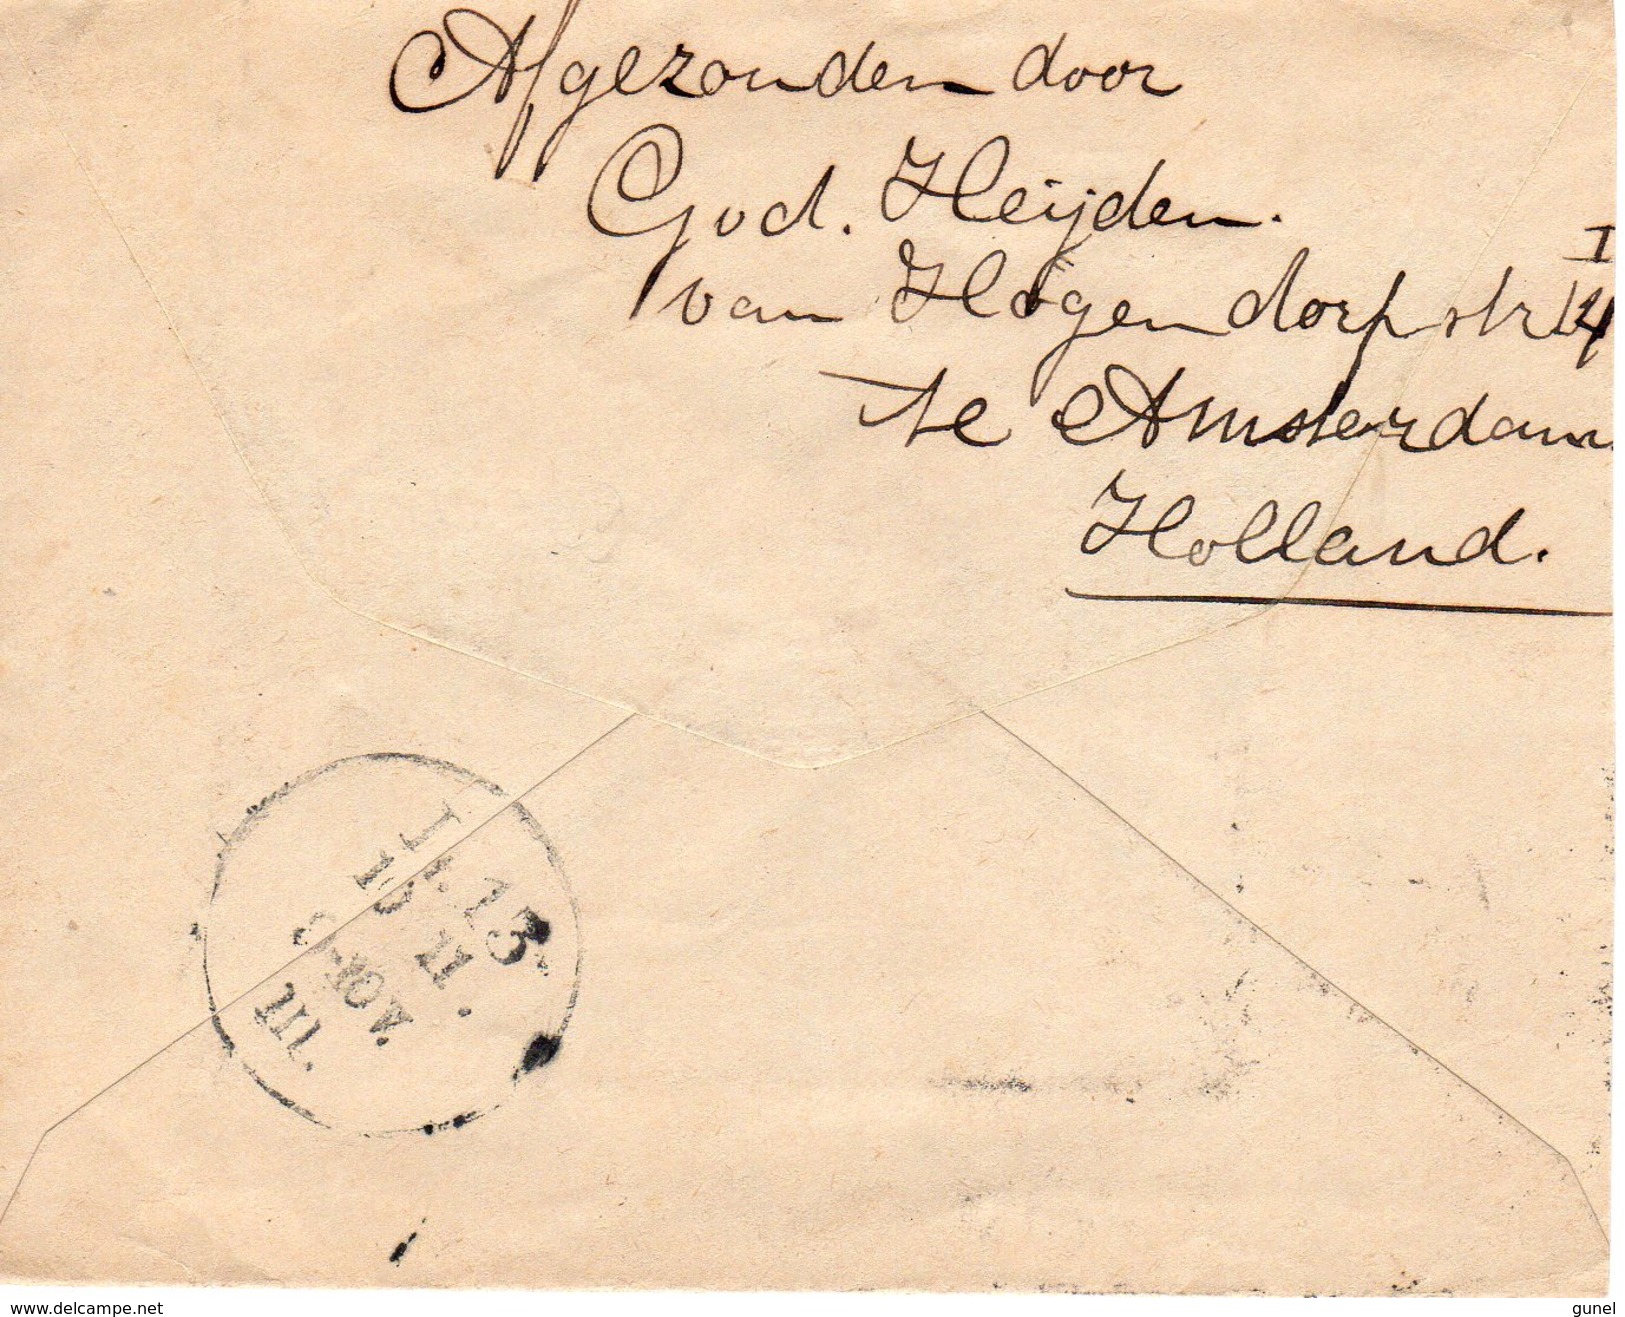 Afgezonden door
God. Heijden.
van Hogendorpstr 14 I
te Amsterdam
Holland.
II. 13
10 11.
VOR.
III.
www.delcampe.net
gunel